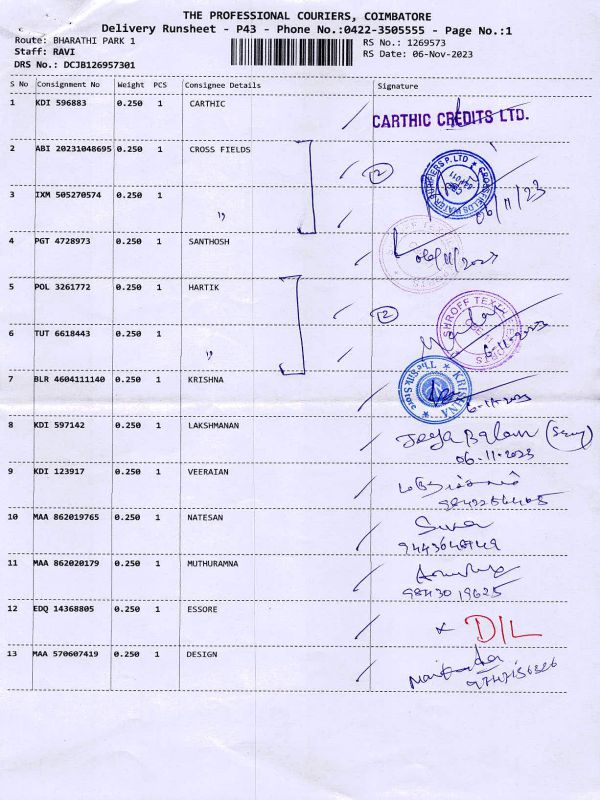 THE PROFESSIONAL COURIERS, COIMBATORE
Delivery Runsheet - P43 - Phone No.:0422-3505555 - Page No.:1
Route: BHARATHI PARK 1
RS No.: 1269573
Staff: RAVI
RS Date: 06-Nov-2023
DRS No.: DCJB126957301
S No Consignment No Weight PCS Consignee Details Signature
1 KDI 596883 0.250 1 CARTHIC
CARTHIC CREDITS LTD.
2 ABI 20231048695 0.250 1 CROSS FIELDS
2
06/11/23
3 IXM 505270574 0.250 1 "
4 PGT 4728973 0.250 1 SANTHOSH
06/11/2023
5 POL 3261772 0.250 1 HARTIK
2
SHROFF TEXT
6 TUT 6618443 0.250 1 "
6-11-2023
7 BLR 4604111140 0.250 1 KRISHNA
KRISHNA The Silk Store
6-11-2023
8 KDI 597142 0.250 1 LAKSHMANAN
06-11-2023
9 KDI 123917 0.250 1 VEERAIAN
10 MAA 862019765 0.250 1 NATESAN
11 MAA 862020179 0.250 1 MUTHURAMNA
98430 19625
12 EDQ 14368805 0.250 1 ESSORE
x D/L
13 MAA 570607419 0.250 1 DESIGN